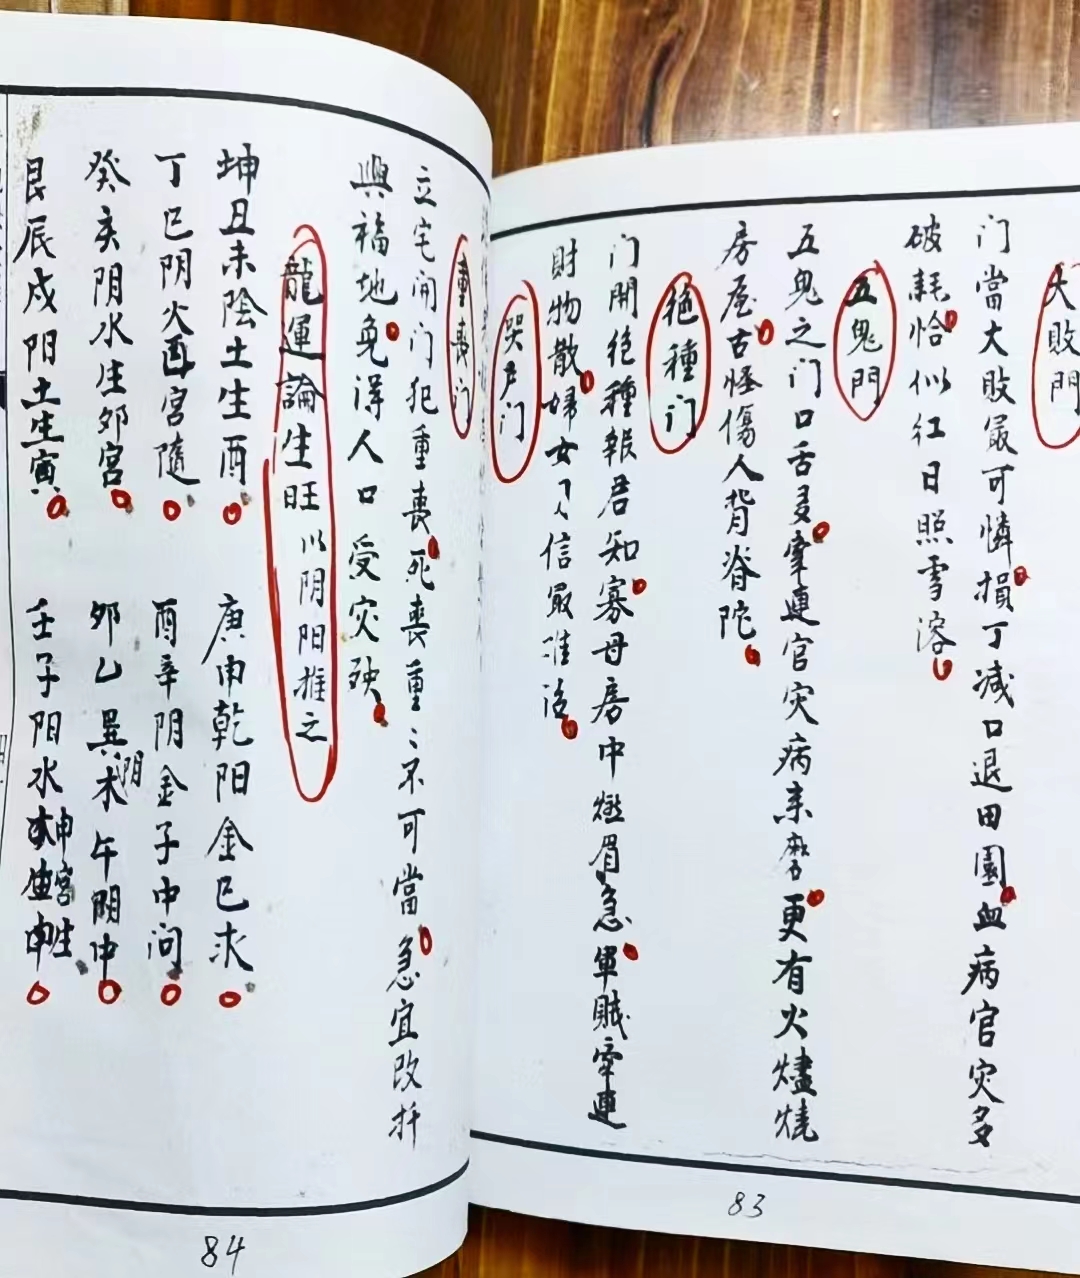 大敗門
门當大敗最可憐損丁减口退田園血病官灾多
破耗恰似红日照雪溶
五鬼門
五鬼之门口舌多牽連官灾病来磨更有火燼燒
房屋古怪傷人背脊陀
绝種门
门開绝種報君知寡母房中燃眉急軍賊牽連
財物散婦女 信最难治
哭声门
83
重喪门
立宅開门犯重喪死喪重〻不可當急宜改拆
興福地免得人口受灾殃
龍運論生旺以阴阳推之
坤丑未陰土生酉 庚申乾阳金巳求
丁巳阴火酉宮隨 酉辛阴金子中问
癸亥阴水生夘宮 夘乙巽阴木午中
艮辰戍阳土生寅 壬子阳水申宮生
84